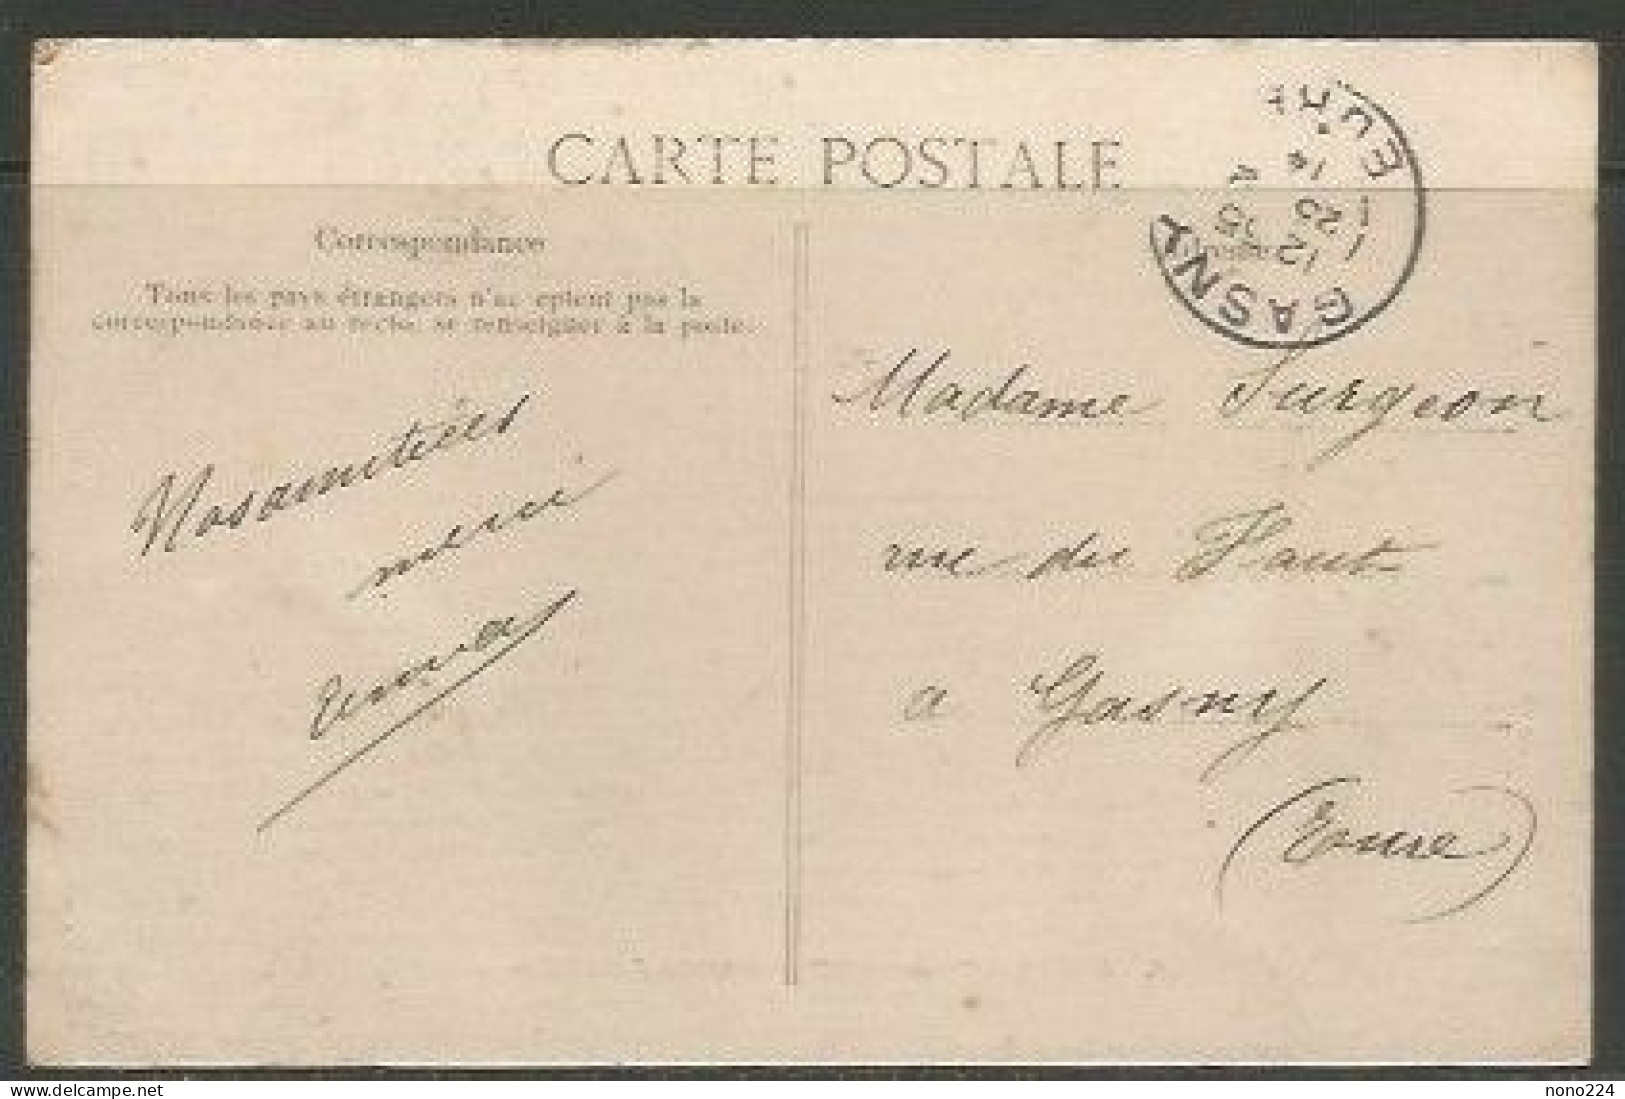 CARTE POSTALE
Correspondance
Tous les pays étrangers n'acceptent pas la
correspondance au recto, se renseigner à la poste.
GASNY
EURE
12
05
Nos amitiées
merci
Emma
Madame Surgeon
rue du Haut
a Gasny
(Eure)
nono224